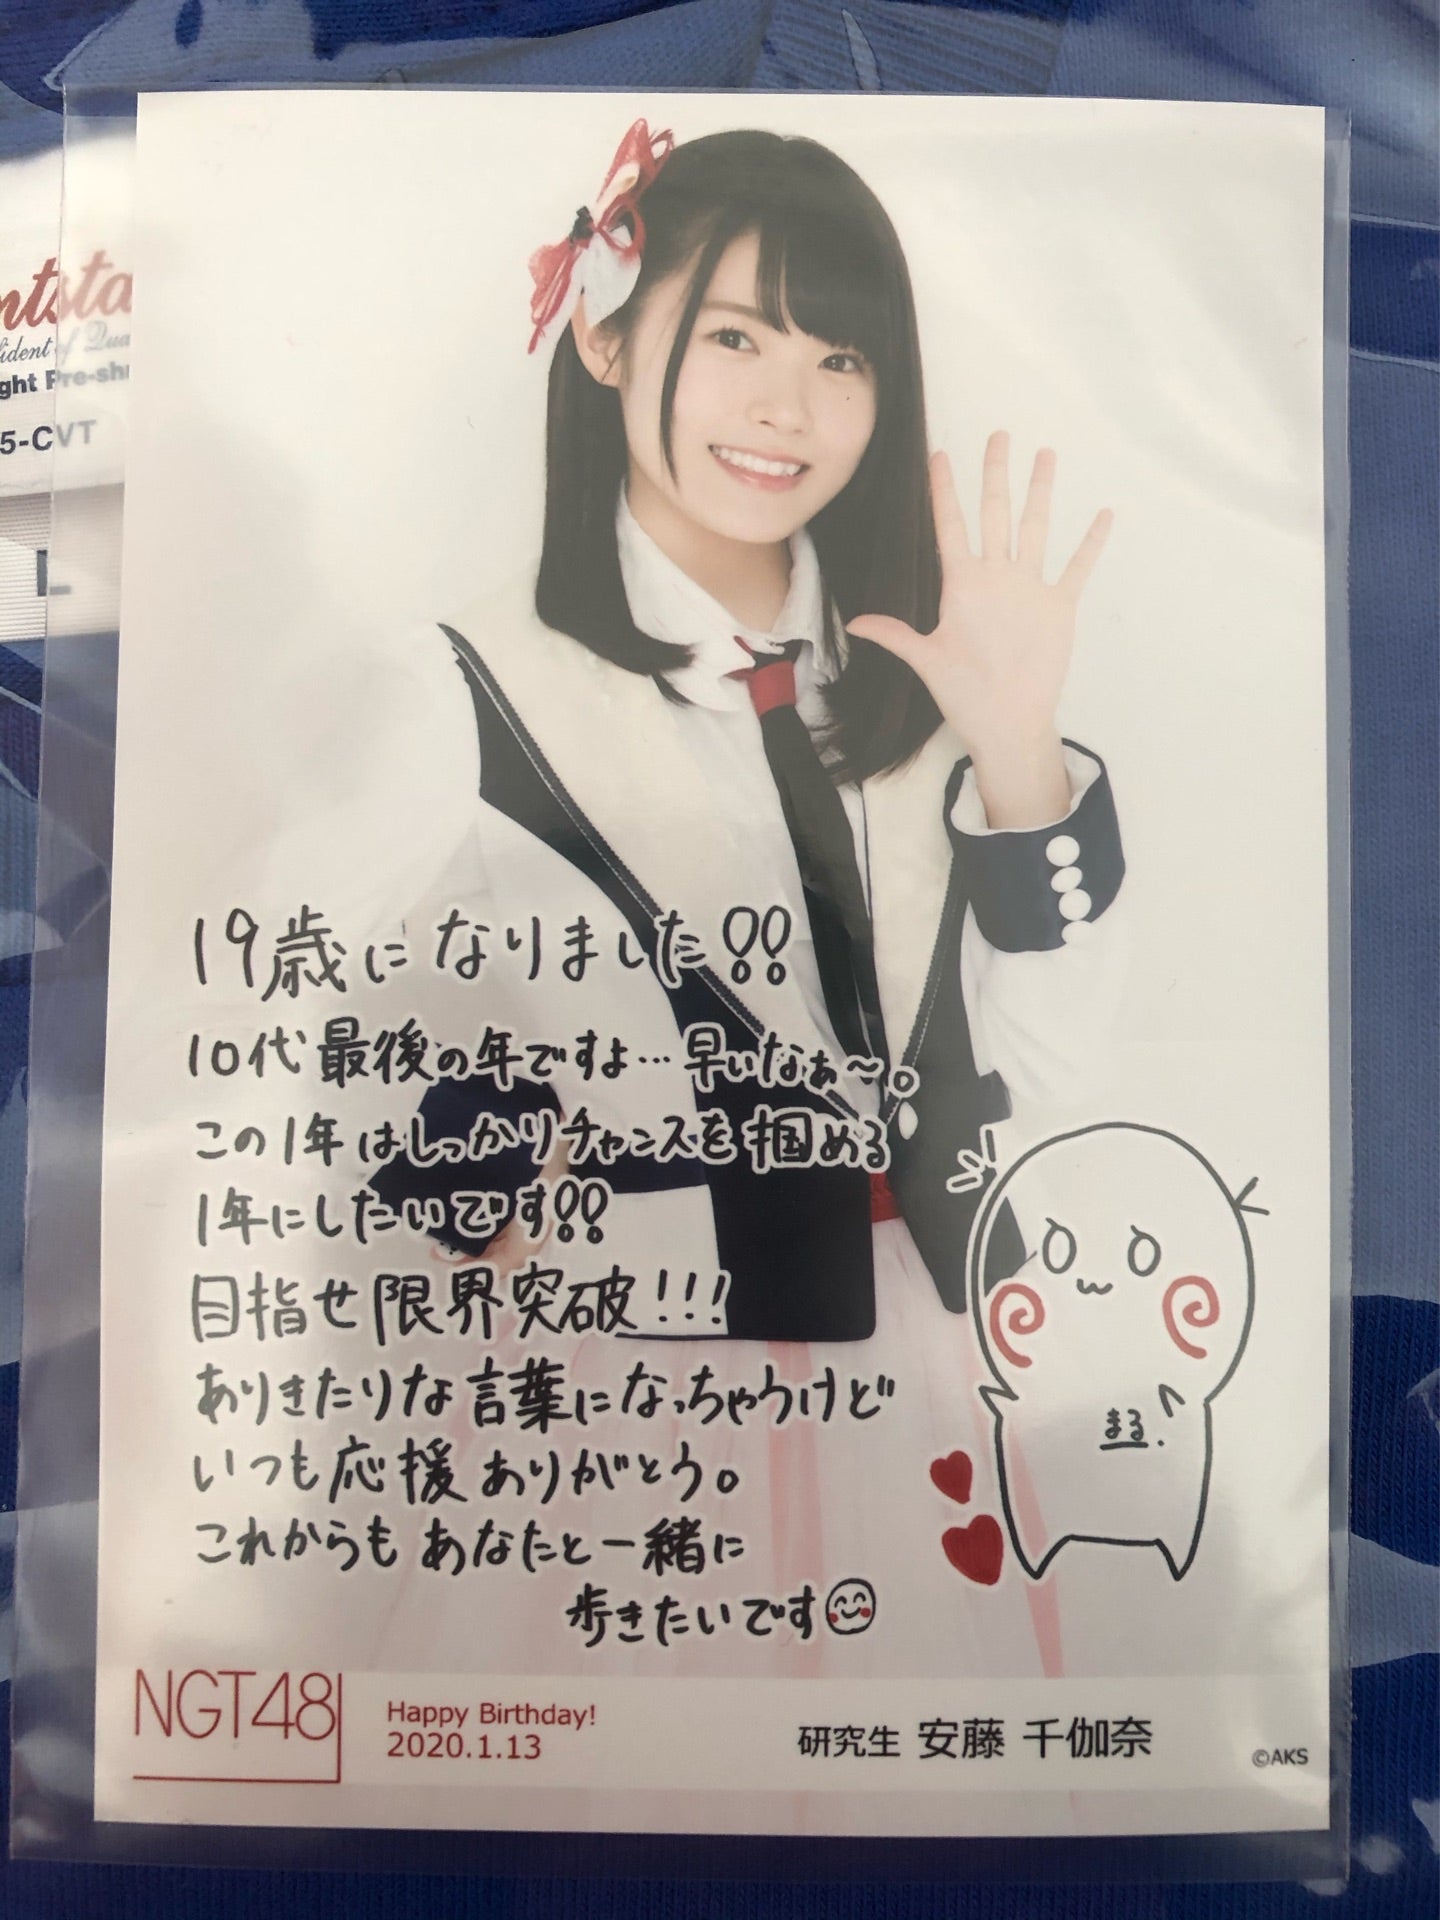 ntsta
fident of Qua
ght Pre-sh
5-CVT
L
19歳になりました!!
10代最後の年ですよ…早いなぁ〜。
この1年はしっかりチャンスを掴める
1年にしたいです!!
目指せ限界突破!!!
ありきたりな言葉になっちゃうけど
いつも応援ありがとう。
これからもあなたと一緒に
歩きたいです
まる.
NGT48
Happy Birthday!
2020.1.13
研究生 安藤 千伽奈
©AKS